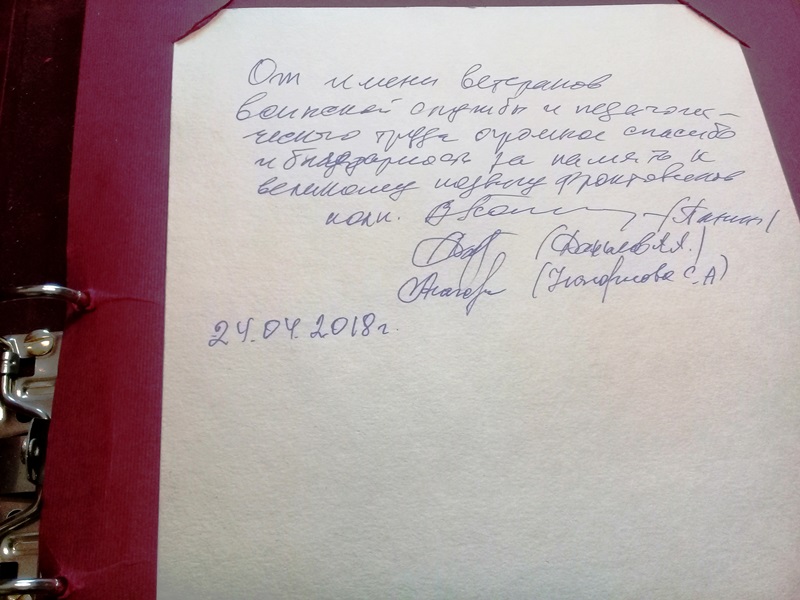 От имени ветеранов
воинской службы и педагоги-
ческого труда огромное спасибо
и благодарность за память к
великому подвигу фронтовиков
полк. (Панин)
24.04.2018г.